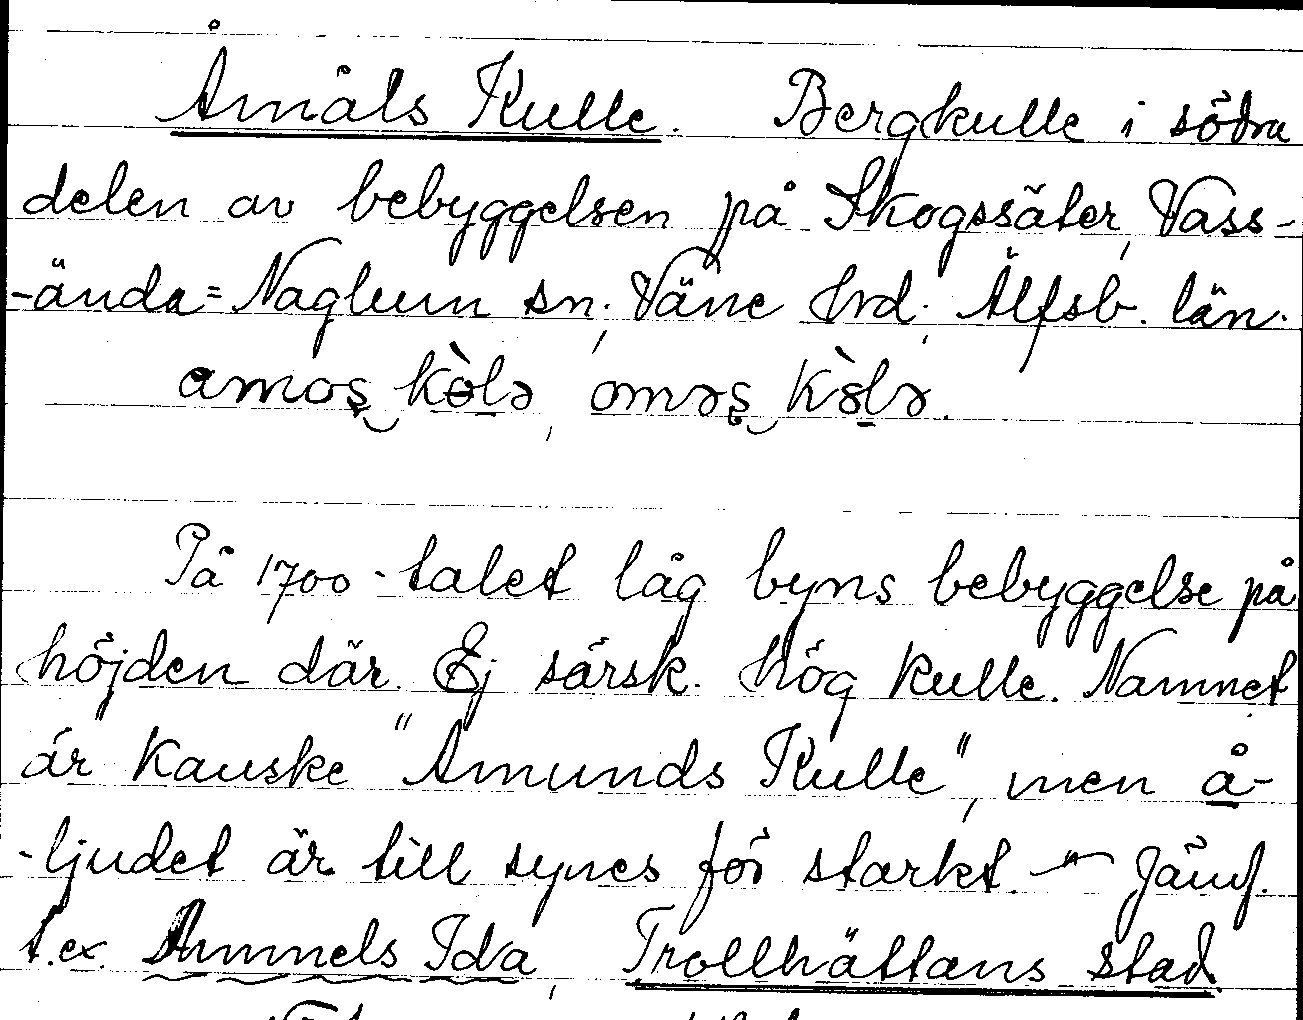 Åmåls Kulle. Bergkulle i södra
delen av bebyggelsen på Skogssäter, Vass-
-ända=Naglum sn; Väne hrd; Älfsb. län.
På 1700-talet låg byns bebyggelse på
höjden där. Ej särsk. hög kulle. Namnet
är kanske "Amunds Kulle", men å-
-ljudet är till synes för starkt. — Jämf.
t.ex. Ammels Ida, Trollhättans stad.